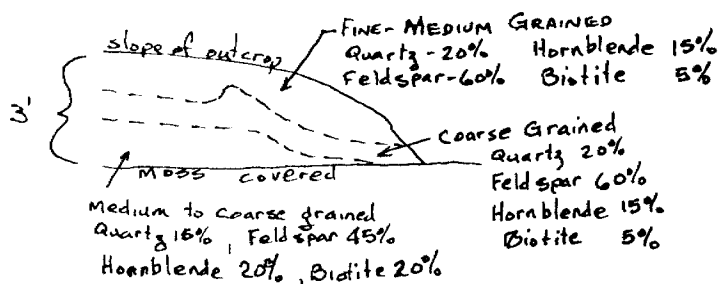 FINE-MEDIUM GRAINED
slope of outcrop
Quartz-20% Hornblende 15%
Feldspar-60% Biotite 5%
3'
Coarse Grained
Quartz 20%
Feldspar 60%
Hornblende 15%
Biotite 5%
Moss covered
Medium to coarse grained
Quartz 15%, Feldspar 45%
Hornblende 20%, Biotite 20%